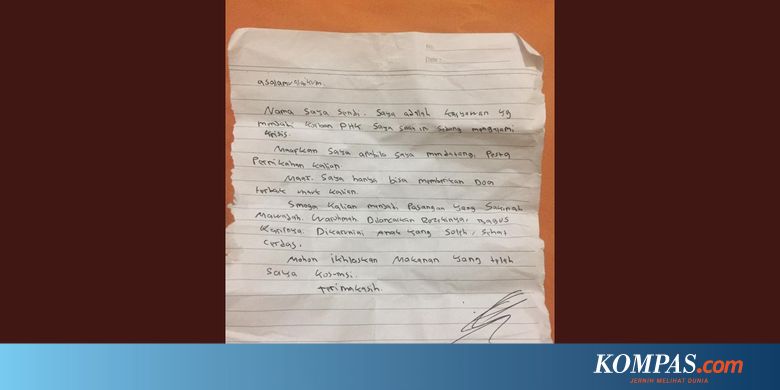 No.
Date:
asalamualaikum.
Nama saya Sendi. Saya adalah karyawan yg
menjadi korban PHK saya saat ini sedang mengalami
krisis.
Maapkan saya apabila saya mendatangi Pesta
Pernikahan kalian.
Maaf. Saya hanya bisa memberikan Doa
terbaik untuk kalian.
Smoga kalian menjadi Pasangan yang Sakinah
Mawadah. Warohmah. Dilancarkan Rezekinya, bagus
Karirnya. Dikaruniai Anak yang Soleh, Sehat
Cerdas.
Mohon ikhlaskan Makanan yang telah
Saya konsumsi.
Terimakasih.
KOMPAS.com
JERNIH MELIHAT DUNIA